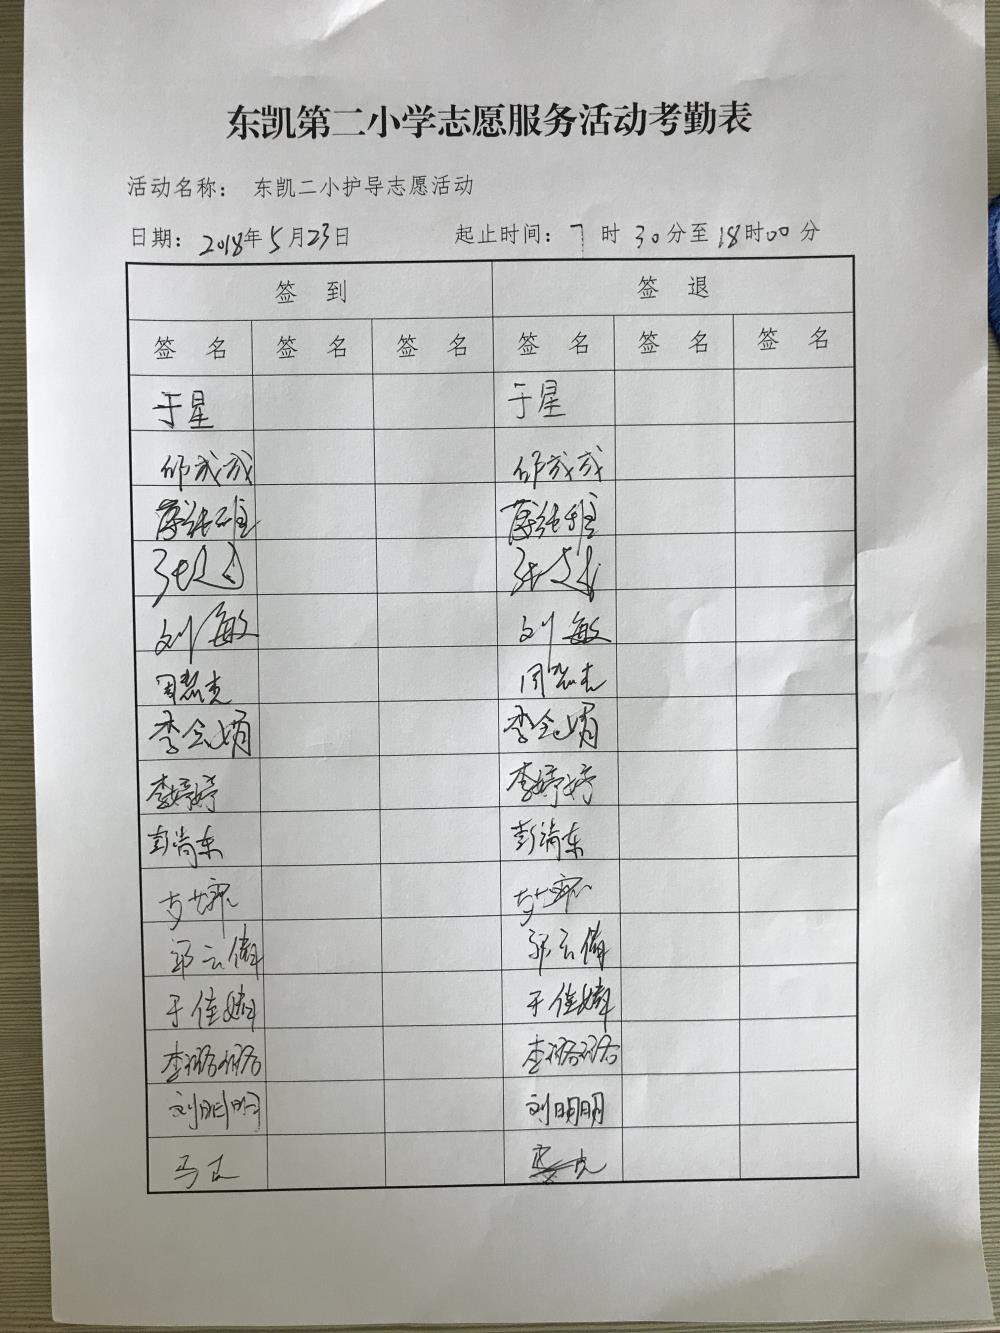 东凯第二小学志愿服务活动考勤表
活动名称： 东凯二小护导志愿活动
日期：2018年5月23日 起止时间：7时30分至18时00分
签 到 签 退
签 名 签 名 签 名 签 名 签 名 签 名
于星 于星
邱成成 邱成成
刘敏 刘敏
李会娟 李会娟
李婷婷 李婷婷
彭清东 彭清东
郭云倩 郭云倩
于佳婧 于佳婧
李璐璐 李璐璐
刘明明 刘明明